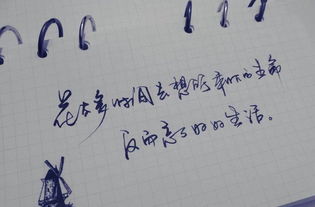 花太多时间去想所剩下的生命
反而忘了好好生活。